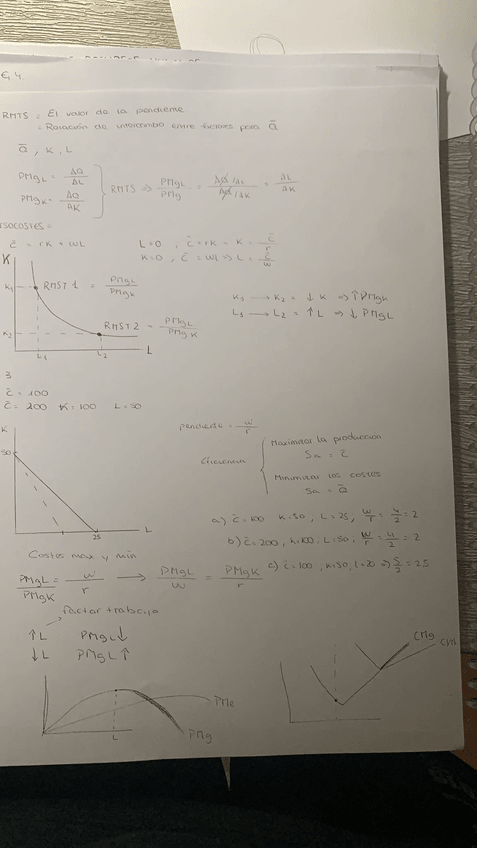 Ej 4.
RMTS : El valor de la pendiente
: Relación de intercambio entre factores para Q̄
Q̄ , K , L
PMgL = ΔQ/ΔL
PMgK = ΔQ/ΔK
RMTS => PMgL/PMg = ΔQ/ΔL / ΔQ/ΔK = ΔL/ΔK
ISOCOSTES =
C̄ = rK + WL
L=0 , C̄ = rK - K = C̄/r
K=0 , C̄ = WL => L = C̄/w
K
K1
RMST 1 = PMgL/PMgK
K2
RMST 2 - PMgL/PMgK
L1
L2
L
K1 → K2 = ↓ K => ↑PMgK
L1 → L2 = ↑ L => ↓ PMgL
3
C̄ = 100
C̄ = 200 K = 100 L = 50
K
50
25
L
pendiente = w/r
Eficiencia
Maximizar la producción
Sa = C̄
Minimizar los costes
Sa = Q̄
a) C̄ = 100 K = 50 , L = 25 , W/r = 4/2 = 2
b) C̄ = 200 , K = 100 L = 50 , W/r = 4/2 = 2
c) C̄ = 100 , K = 50 , L = 20 => 5/2 = 2.5
Costos max y min
PMgL/PMgK = w/r → PMgL/W = PMgK/r
factor trabajo
↑L PMgL↓
↓L PMgL↑
PMe
L
PMg
CMg